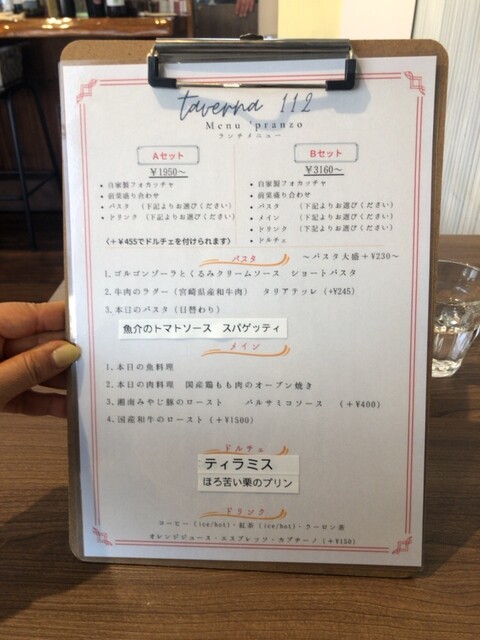 taverna 112
Menu 'pranzo
ランチメニュー
Aセット
¥1950~
• 自家製フォカッチャ
• 前菜盛り合わせ
• パスタ （下記よりお選びください）
• ドリンク （下記よりお選びください）
（＋¥455でドルチェを付けられます）
Bセット
¥3160~
• 自家製フォカッチャ
• 前菜盛り合わせ
• パスタ （下記よりお選びください）
• メイン （下記よりお選びください）
• ドリンク （下記よりお選びください）
• ドルチェ
パスタ ～パスタ大盛＋¥230～
1.ゴルゴンゾーラとくるみクリームソース ショートパスタ
2.牛肉のラグー（宮崎県産和牛肉） タリアテッレ（+¥245）
3.本日のパスタ（日替わり）
魚介のトマトソース スパゲッティ
メイン
1.本日の魚料理
2.本日の肉料理 国産鶏もも肉のオーブン焼き
3.湘南みやじ豚のロースト バルサミコソース （+¥400）
4.国産和牛のロースト（+¥1500）
ドルチェ
ティラミス
ほろ苦い栗のプリン
ドリンク
コーヒー（ice/hot）・紅茶（ice/hot）・ウーロン茶
オレンジジュース・エスプレッソ・カプチーノ（+¥150）